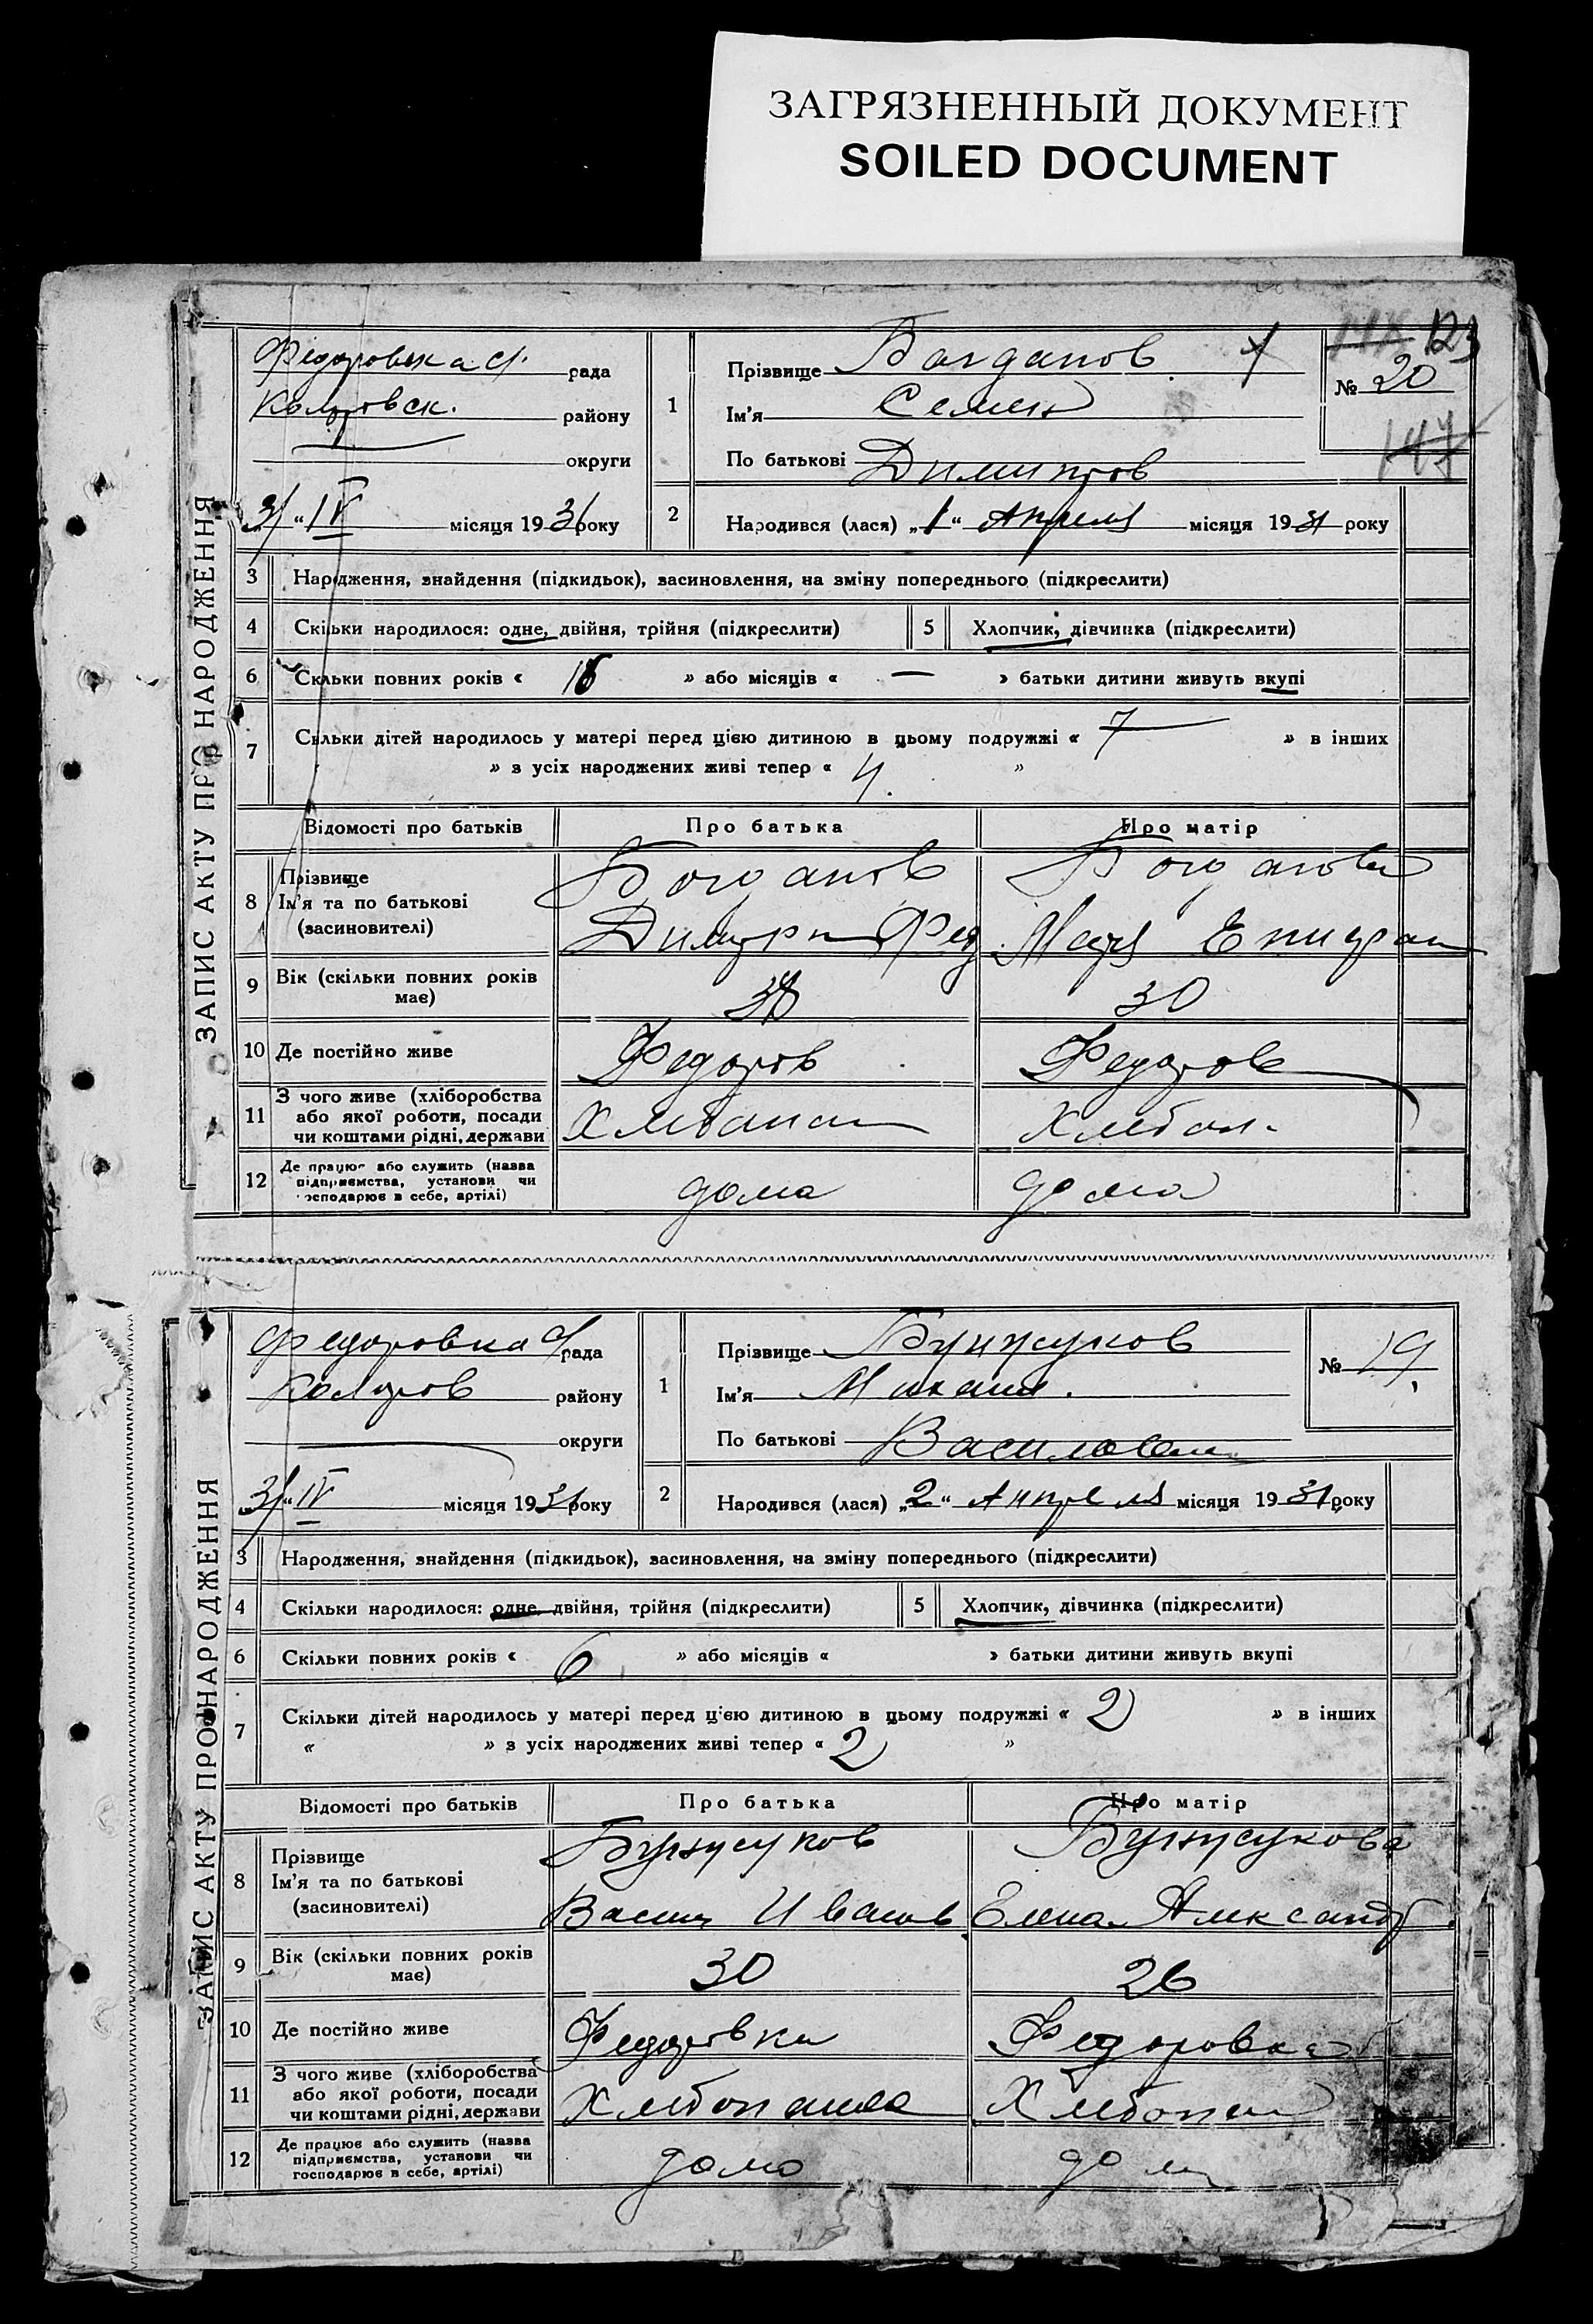 ЗАГРЯЗНЕННЫЙ ДОКУМЕНТ
SOILED DOCUMENT
ЗАПИС АКТУ ПРО НАРОДЖЕННЯ
123
Федоровка с/ рада
району
округи
3/ "IV місяця 1931 року
1 Прізвище Богданов
Ім'я Семен
По батькові Димитров
№ 20
147
2 Народився (лася) „1“ Апреля місяця 1931 року
3 Народження, знайдення (підкидьок), засиновлення, на зміну попереднього (підкреслити)
4 Скільки народилося: одне, двійня, трійня (підкреслити) 5 Хлопчик, дівчинка (підкреслити)
6 Скільки повних років « 18 » або місяців « — » батьки дитини живуть вкупі
7 Скільки дітей народилось у матері перед цією дитиною в цьому подружжі « 7 » в інших
» з усіх народжених живі тепер « 4. »
Відомості про батьків Про батька Про матір
8 Прізвище Богданов Богданова
Ім'я та по батькові
(засновителі) Димитри Фед.
9 Вік (скільки повних років має) 38 30
10 Де постійно живе Федоров Федоров
11 З чого живе (хліборобства
або якої роботи, посади
чи коштами рідні, держави
12 Де працює або служить (назва
підприємства, установи чи
господарює в себе, артілі) дома дома
ЗАПИС АКТУ ПРО НАРОДЖЕННЯ
Федоровка с/ рада
Коларов району
округи
3/ "IV місяця 1931 року
1 Прізвище Бунжуков
Ім'я Михаил.
По батькові
№ 19
2 Народився (лася) „2“ Апреля місяця 1931 року
3 Народження, знайдення (підкидьок), засиновлення, на зміну попереднього (підкреслити)
4 Скільки народилося: одне, двійня, трійня (підкреслити) 5 Хлопчик, дівчинка (підкреслити)
6 Скільки повних років « 6 » або місяців « » батьки дитини живуть вкупі
7 Скільки дітей народилось у матері перед цією дитиною в цьому подружжі « 2 » в інших
« » з усіх народжених живі тепер « 2 »
Відомості про батьків Про батька Про матір
8 Прізвище Бунжуков Бунжукова
Ім'я та по батькові
(засиновителі) Васил Иванов Елена Александ
9 Вік (скільки повних років має) 30 26
10 Де постійно живе Федоровка Федоровка
11 З чого живе (хліборобства
або якої роботи, посади
чи коштами рідні, держави
12 Де працює або служить (назва
підприємства, установи чи
господарює в себе, артілі) дома дома